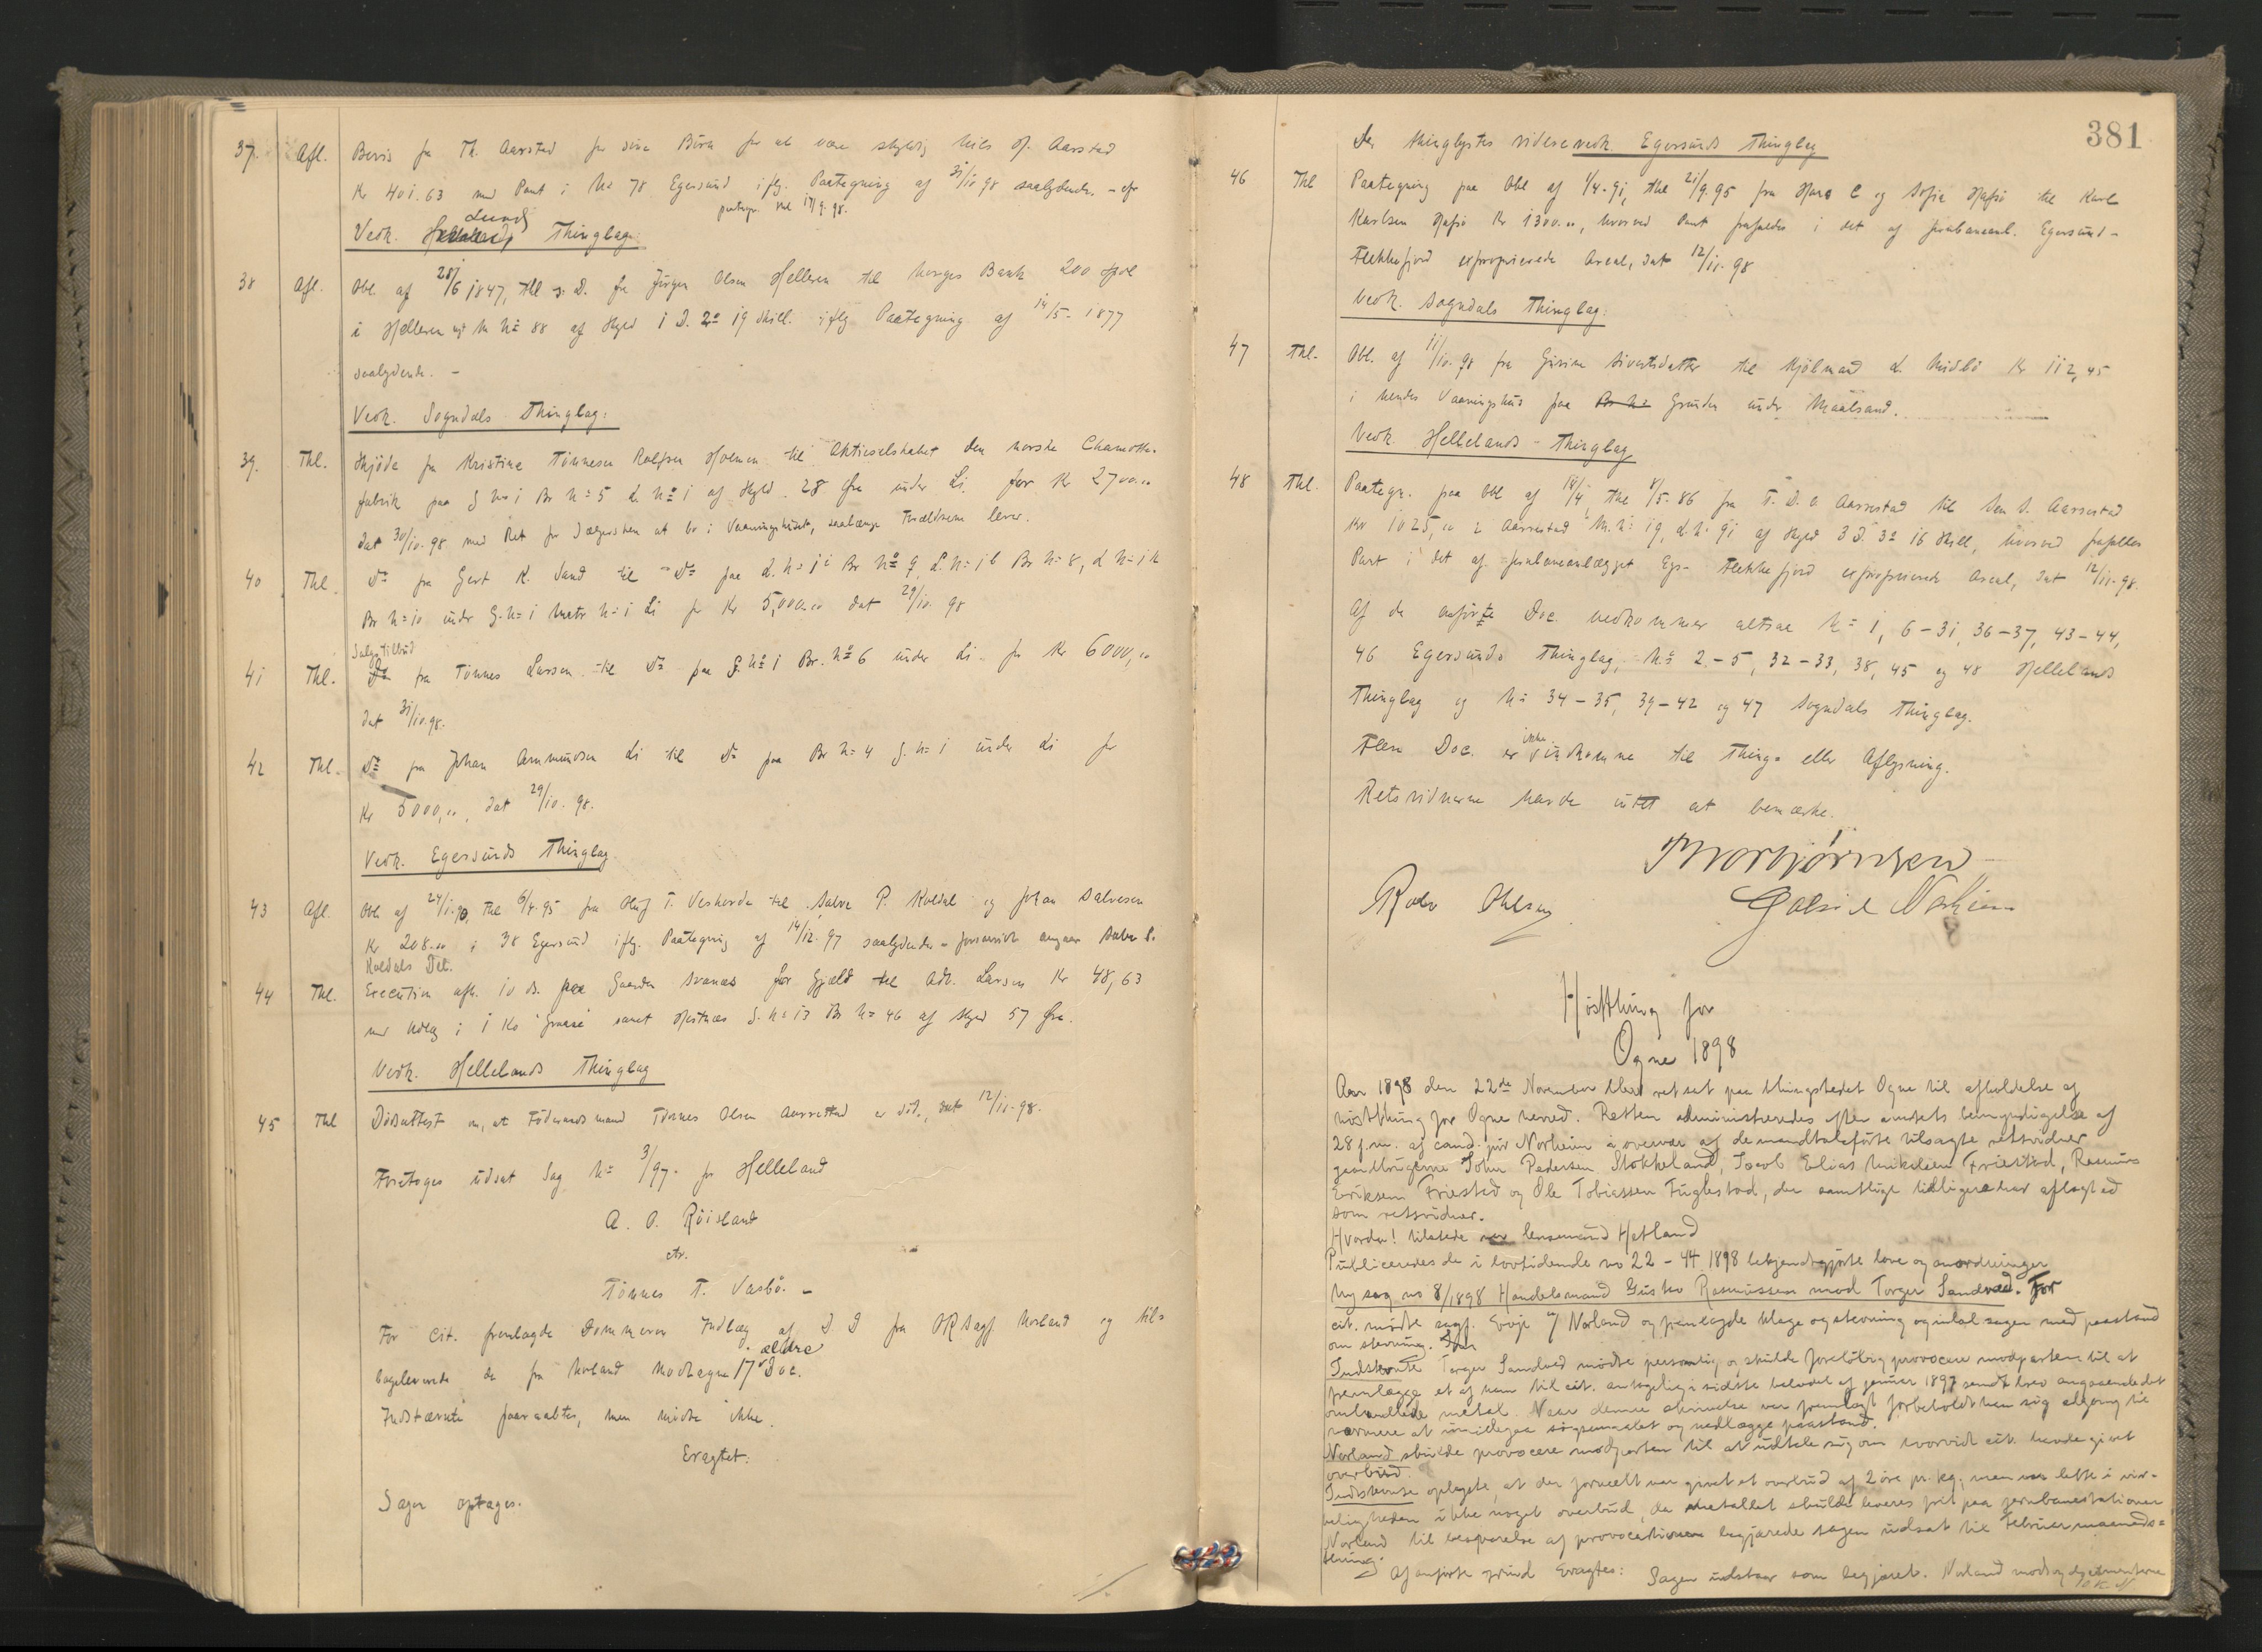 37. Afl. Bevis fra Th. Aarstad for sine Börn for at være skyldig Nils Of. Aarstad
Kr 401.63 med Pant i No 78 Egersund iflg. Paategning af 31/10 98 saalydende. -
paategn. thl 17/9. 98.
Lund
Vedk. Thinglag:
38 Afl. Obl. af 28/6 1847, thl s. D. fra Jörgen Olsen Helleren til Norges Bank 200 Spdl
i Helleren M No 88 af Skyld 1 D. 2 19 Skill. iflg Paategning af 14/5 - 1877
saalydende. -
Vedk. Sogndals Thinglag:
39. Thl. Skjöde fra Kristine Tönnesen Rolfsen Holmen til Aktieselskabet den norske Chamotte-
fabrik paa G No 1 Br No 5 L No 1 af Skyld 28 Øre under Li for Kr 2700.00
dat 30/10. 98 med Ret for Sælgersken at bo i Vaaningshuset, saalænge Forældrene lever.
40 Thl. Do fra Gert K. Sand til Do paa L. No 1 i Br No 9, L. No 1 b Br No 8, L No 1 k
Br No 10 under G. No 1 Matr No 1 Li for Kr 5,000.00 dat 29/10. 98
Salgstilbud
41 Thl. Do fra Tönnes Larsen til Do paa G. No 1 Br. No 6 under Li for Kr 6000,00
dat 31/10. 98.
42 Thl. Do fra Johan Ommundsen Li til Do paa Br No 4 G. No 1 under Li for
Kr 5000,00, dat 29/10. 98.
Vedk. Egersunds Thinglag.
43 Afl. Obl. af 24/1. 90, Thl 6/4. 95 fra Oluf T. Veshovda til Salve P. Koldal og Johan Salvesen
Kr 208.00 i 38 Egersund iflg. Paategning af 14/12. 97 saalydende - forsaavidt angaar Salve P.
Koldals Del.
44 Thl. Execution afh. 10 ds. paa Gaarden Svanæs for Gjæld til Adv. Larsen Kr 48,63
med Udlæg i 1 Ko "Graaxi" samt Hestnæs G. No 13 Br No 46 af Skyld 57 Øre.
Vedk. Hellelands Thinglag
45 Thl Dödsattest om, at Föderaadsmand Tönnes Olsen Aarrestad er död, dat 12/11. 98.
Foretoges udsat Sag No 3/97. for Helleland
A. O. Röisland
ctr.
Tönnes T. Vasbö. -
For Cit. fremlagde Dommeren Indlæg af D. D fra ORSagf Norland og til-
bageleverede de fra Norland modtagne 17 ældre Doc.
Indstævnte paaraabtes, men mödte ikke.
Eragtet:
Sagen optages.
381
Der thinglystes videre vedk. Egersunds Thinglag
46 Thl Paategning paa Obl af 1/4. 91, thl 21/9. 95 fra Hans C og Sofie Hafsö til Karl
Karlsen Hafsö Kr 1300.00, hvorved Pant frafaldes i det af Jernbaneanl. Egersund-
Flekkefjord exproprierede Areal, dat 12/11. 98
Vedk. Sogndals Thinglag:
47 Thl. Obl. af 11/10. 98 fra Gurine Sivertsdatter til Hjölmand L. Midbö Kr 112,45
i hendes Vaaningshus paa Br No Grunden under Maalsand.
Vedk Hellelands - Thinglag
48 Thl. Paategn. paa Obl af 14/4 thl 8/5. 86 fra T. D. O. Aarrestad til Sem S. Aarrestad
Kr 1025,00 i Aarrestad M. No 19, L No 91 af Skyld 3 D. 3 16 Skill, hvorved frafaldes
Pant i det af Jernbaneanlægget Egs- Flekkefjord exproprierede Areal, dat 12/11. 98.
Af de anförte Doc. vedkommer altsaa No 1, 6-31, 36-37, 43-44,
46 Egersunds Thinglag, No 2-5, 32-33, 38, 45 og 48 Hellelands
Thinglag og No 34-35, 39-42 og 47 Sogndals Thinglag.
Flere Doc. er ikke indkomne til Thing- eller Aflysning.
Retsvidnerne havde intet at bemærke.
Thorbjörnsen
Rasm Ohlsen Gabriel
Høstthing for
Ogne 1898
Aar 1898 den 22de November blev ret sat paa thingstedet Ogne til afholdelse af
høstthing for Ogne herred. Retten administreredes efter amtets bemyndigelse af
28 f.m. af cand. jur Norheim i overvær af de mandtalsførte tilsagte retsvidner
gaardbrugerne John Pedersen Stokkeland, Jacob Elias Mikelsen Friestad, Rasmus
Eriksen Friestad og Ole Tobiassen Fuglestad, der samtlige tidligere har aflagt ed
som retsvidner.
Hvorda! tilstede var lensmand Hetland
Publiceredes de i lovtidende no 22 - 44 1898 bekjendtgjorte love og anordninger
Ny sag no 8/1898 Handelsmand Gustav Rasmussen mod Torger Sandved. For
cit. mødte sagf. Norland og fremlagde klage og stevning og indlod sagen med paastand
om stevning.
Indstevnte Torger Sandved mødte personlig og skulde foreløbig provocere modparten til at
fremlægge et af ham til cit. antagelig i sidste halvdel af januar 1897 sendt brev angaaende det
omhandlede metal. Naar denne skrivelse var fremlagt forbeholdt han sig adgang til
nærmere at imødegaa søgsmaalet og nedlægge paastand.
Norland skulde provocere modparten til at udtale sig om hvorvidt cit. havde givet
overbud.
Indstevnte oplyste, at der forvælt var givet et overbud af 2 öre pr. kg; men var dette i vir-
keligheden ikke noget overbud, da metallet skulde leveres frit paa jernbanestationen
Norland til besvarelse af provocationen begjærede sagen udsat til Februar maaneds-
thing.
Af anførte grund Eragtes: Sagen udstaar som begjæret. Norland modtog dokumenterne